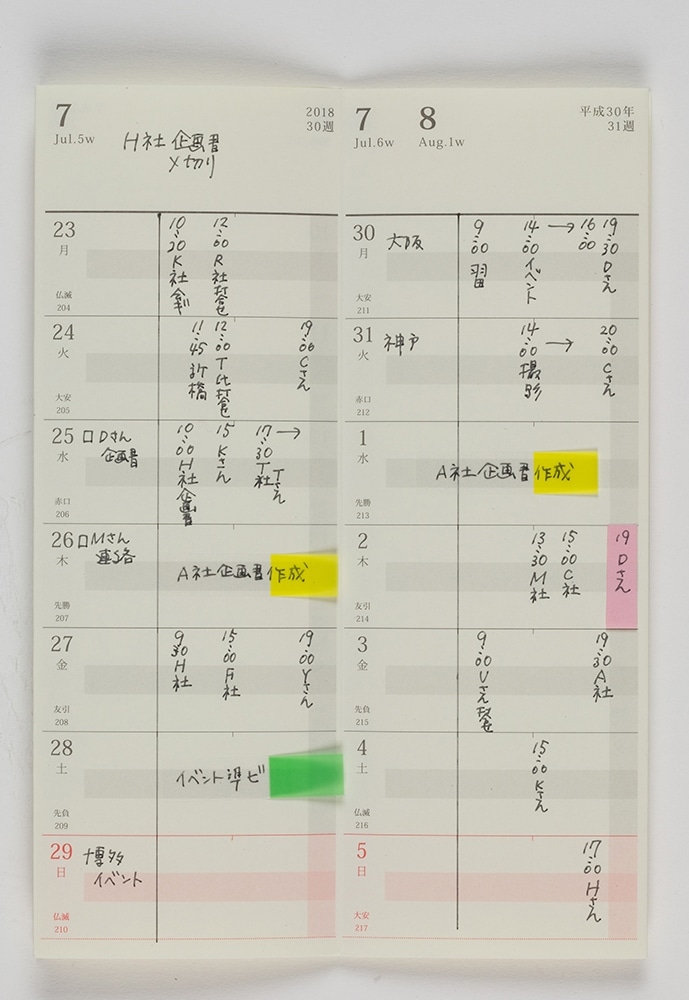 7
Jul.5w
H社 企画書
〆切り
2018
30週
23
月
仏滅
204
10:20 K社
12:00 R社打合せ
24
火
大安
205
11:45 新橋
12:00 T社打合せ
19:00 Cさん
25
水
赤口
206
□Dさん
企画書
10:00 H社企画書
15 Kさん
17:30 T社 Tさん →
26
木
先勝
207
□Mさん
連絡
A社企画書作成
27
金
友引
208
9:30 H社
15:00 F社
19:00 Yさん
28
土
先負
209
イベント準ビ
29
日
仏滅
210
博多
イベント
7
Jul.6w
8
Aug.1w
平成30年
31週
30
月
大安
211
大阪
9:00
14:00 イベント → 16:00
19:30 Dさん
31
火
赤口
212
神戸
14:00 撮影 →
20:00 Cさん
1
水
先勝
213
A社企画書作成
2
木
友引
214
13:30 M社
15:00 C社
19 Dさん
3
金
先負
215
9:00 Uさん
19:30 A社
4
土
仏滅
216
15:00 Kさん
5
日
大安
217
17:00 Hさん